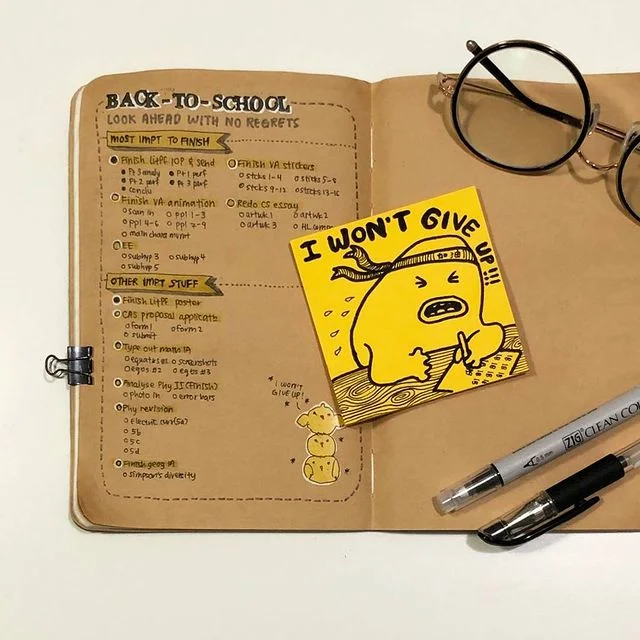 BACK-TO-SCHOOL
LOOK AHEAD WITH NO REGRETS
MOST IMPT TO FINISH
Finish LitPF IOP & send
Pt 3 analy Pt 1 perf
Pt 2 perf Pt 3 perf
conclu
Finish VA animation
scan in ppl 1-3
ppl 4-6 ppl 7-9
main chara mvmt
EE
subhyp 3 subhyp 4
subhyp 5
Finish VA stickers
stcks 1-4 stcks 5-8
stcks 9-12 stcks 13-16
Redo CS essay
artwk 1 artwk 2
artwk 3
OTHER IMPT STUFF
Finish LitPF poster
CAS proposal
form 1 form 2
submit
Type out math IA
screenshots
Analyse Phy II (Finish)
photo in error bars
Phy revision
5b
5c
5d
Finish geog IA
simpson's diversity
* I WON'T
GIVE UP! *
I WON'T GIVE UP!!!
ZIG CLEAN CO